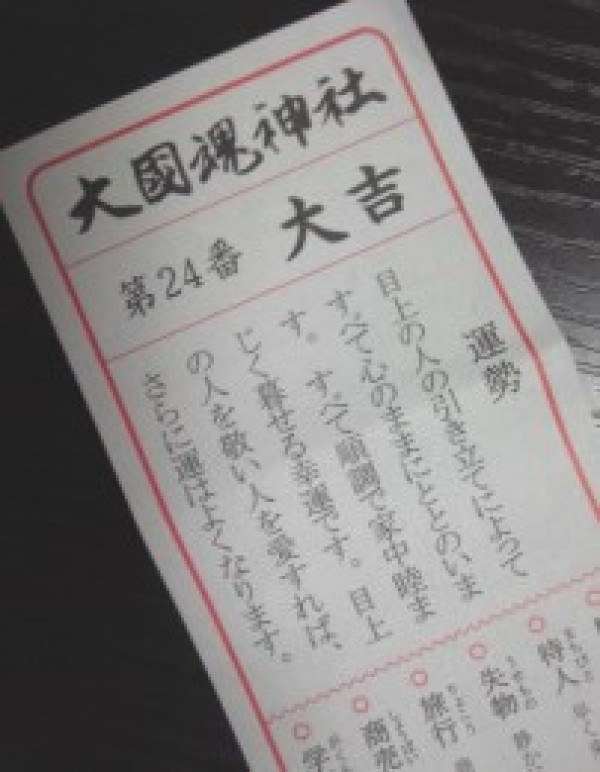 大國魂神社
第24番 大吉
運勢
目上の人の引き立てによって
すべて心のままにととのいま
す。すべて順調で家中睦ま
じく暮せる幸運です。目上
の人を敬い人を愛すれば、
さらに運はよくなります。
待人
まちびと
失物
うせもの
静か
旅行
りょこう
商売
学